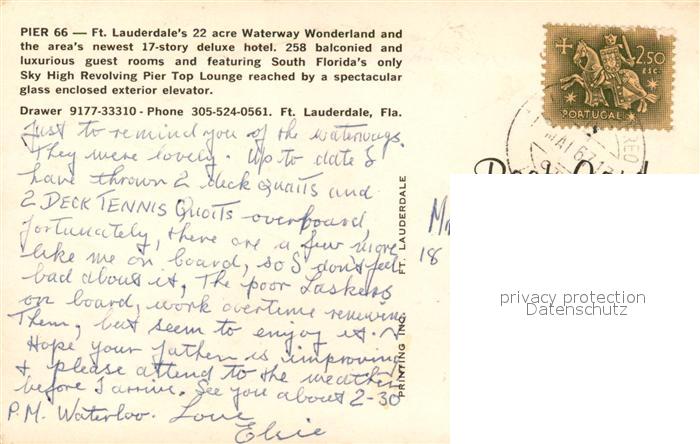 PIER 66 — Ft. Lauderdale's 22 acre Waterway Wonderland and
the area's newest 17-story deluxe hotel. 258 balconied and
luxurious guest rooms and featuring South Florida's only
Sky High Revolving Pier Top Lounge reached by a spectacular
glass enclosed exterior elevator.
Drawer 9177-33310 - Phone 305-524-0561. Ft. Lauderdale, Fla.
Just to remind you of the waterways.
They were lovely. Up to date I
have thrown 2 deck Quoits and
2 DECK TENNIS Quoits overboard,
fortunately, there are a few more
like me on board, so I don't feel
bad about it, The poor Laskers
on board, work overtime renewing
Them, but seem to enjoy it.
Hope your father is improving
& please attend to the weather
before I arrive. See you about 2-30
P.M. Waterloo. Love
Elsie
PRINTING INC. FT. LAUDERDALE
2.50
ESC.
PORTUGAL
MAI 67
18
privacy protection
Datenschutz